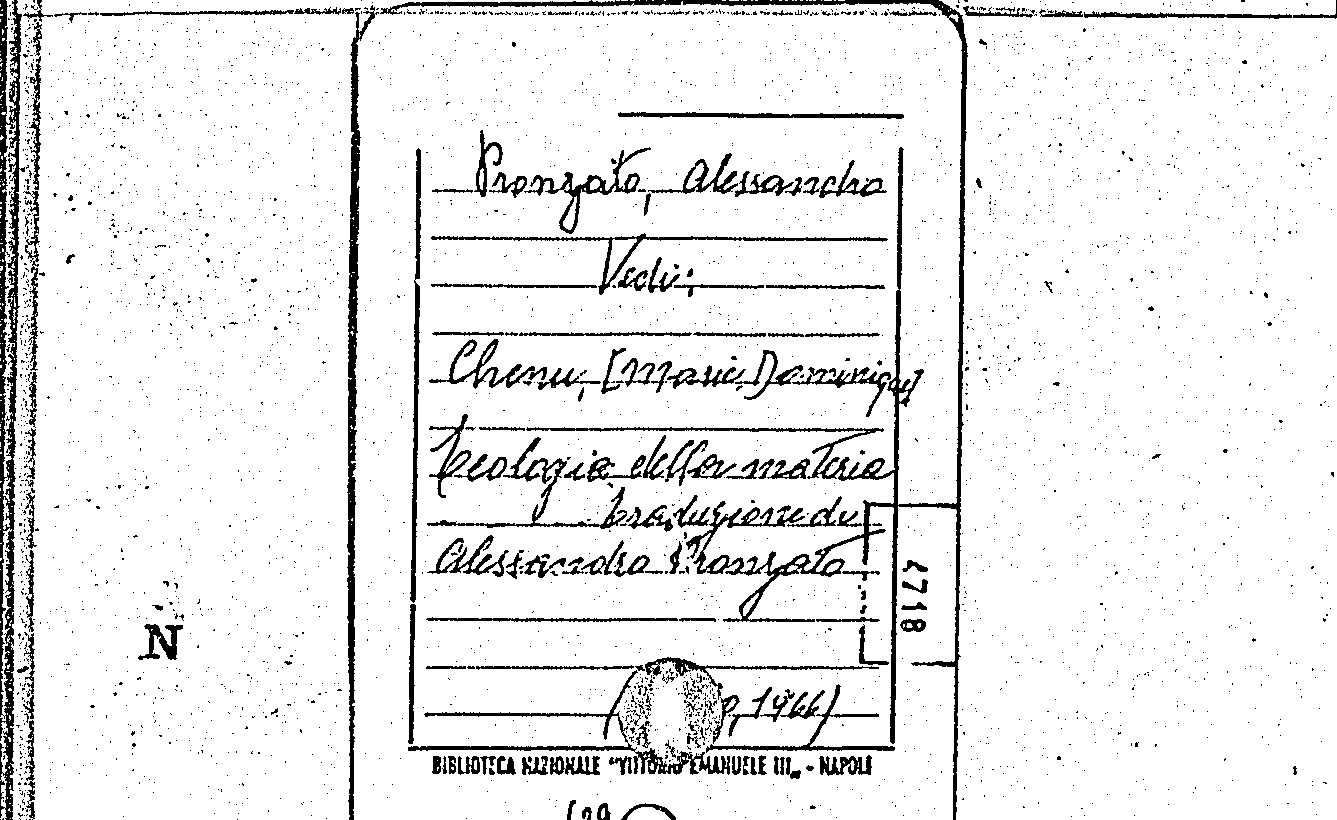 Pronzato, Alessandro
Vedi:
Chenu, [Marie, Dominique]
Teologia della materia
traduzione di
Alessandro Pronzato
4718
N
, 1966)
BIBLIOTECA NAZIONALE "VITTORIO EMANUELE III„ - NAPOLI